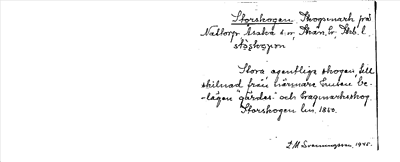 Storskogen, Skogsmark på
Nattorp, Asaka s:n, Skån. hr, Skb. l.
stórskogən
Stora egentliga skogen, till
skilnad från närmare husen be-
lägen gärdes- och hagmarksskog.
Storskogen lm. 1860.
J. M. Svenningsson, 1945.